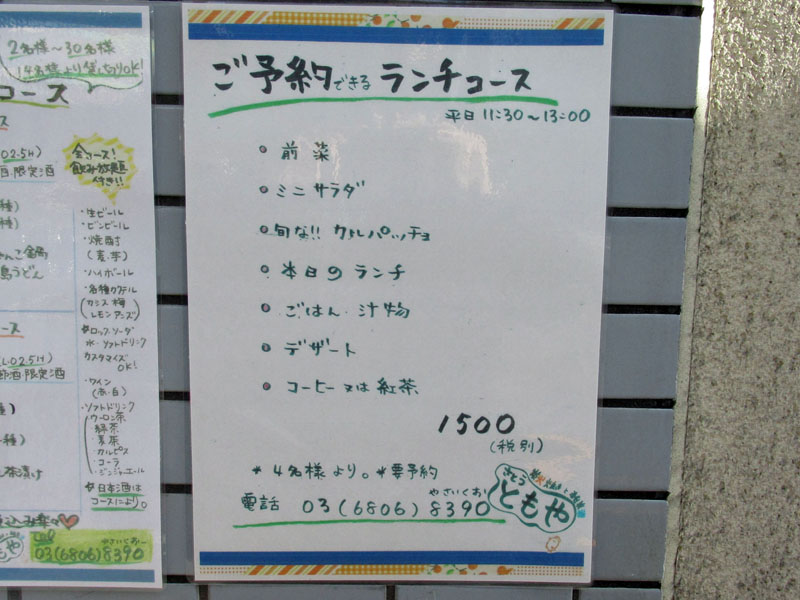 2名様~30名様
14名様より貸し切りOK!
コース
全コース!
飲み放題
付き!!
・生ビール
・ビンビール
・焼酎
(麦・芋)
・ハイボール
・各種カクテル
(カシス 梅
レモン アンズ)
ロック・ソーダ
水・ソフトドリンク
カスタマイズ
OK!
・ワイン
(赤・白)
・ソフトドリンク
ウーロン茶
緑茶
・麦茶
・カルピス
・コーラ
・ジンジャーエール
日本酒は
コースにより。
やさいくおー
03(6806)8390
ご予約できるランチコース
平日 11:30~13:00
• 前菜
• ミニサラダ
• 旬な!! カルパッチョ
• 本日のランチ
• ごはん・汁物
• デザート
• コーヒー又は紅茶
1500
(税別)
*4名様より。*要予約
やさいくお
電話 03(6806)8390
さとう
ともや